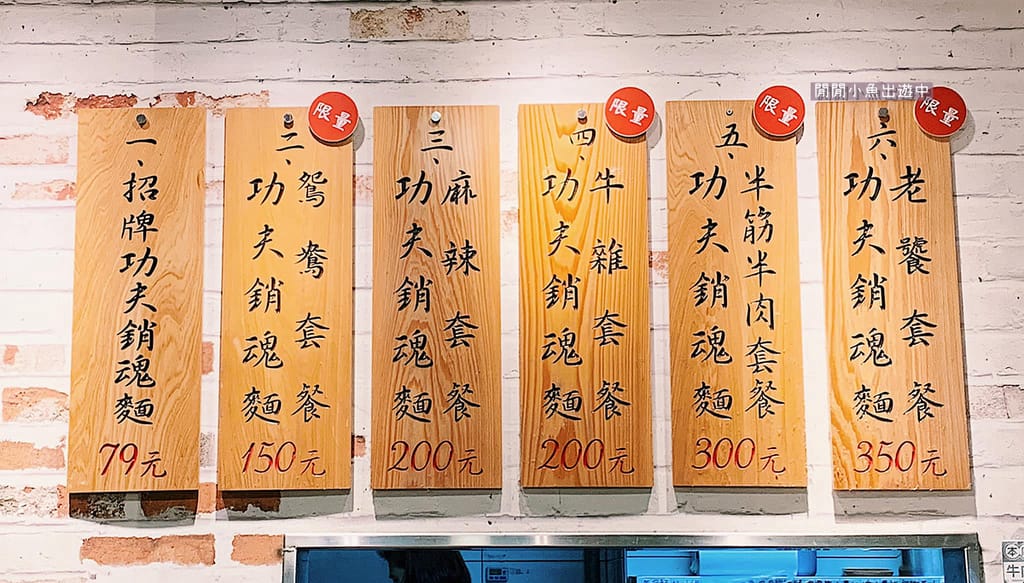 一、招牌功夫銷魂麵
79元
限量
二、鴛鴦套餐
功夫銷魂麵
150元
三、麻辣套餐
功夫銷魂麵
200元
限量
四、牛雜套餐
功夫銷魂麵
200元
限量
五、半筋半肉套餐
功夫銷魂麵
300元
限量
六、老饕套餐
功夫銷魂麵
350元
閒閒小魚出遊中
本
牛